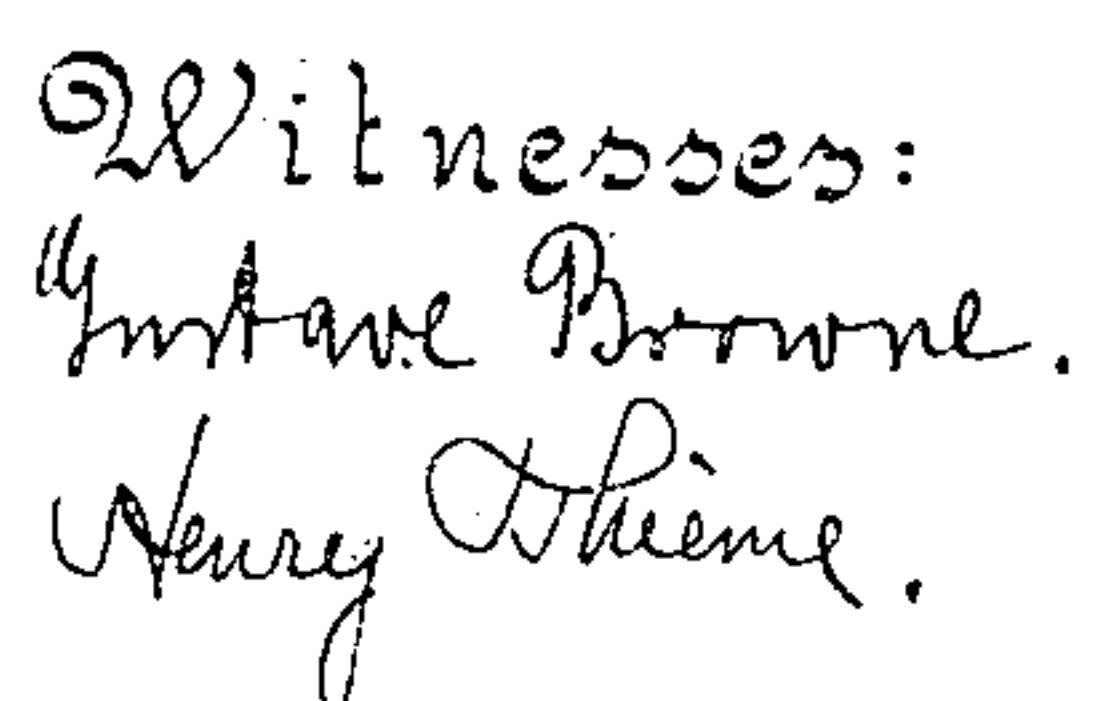 Witnesses:
Gustave Browne.
Henry Thieme.